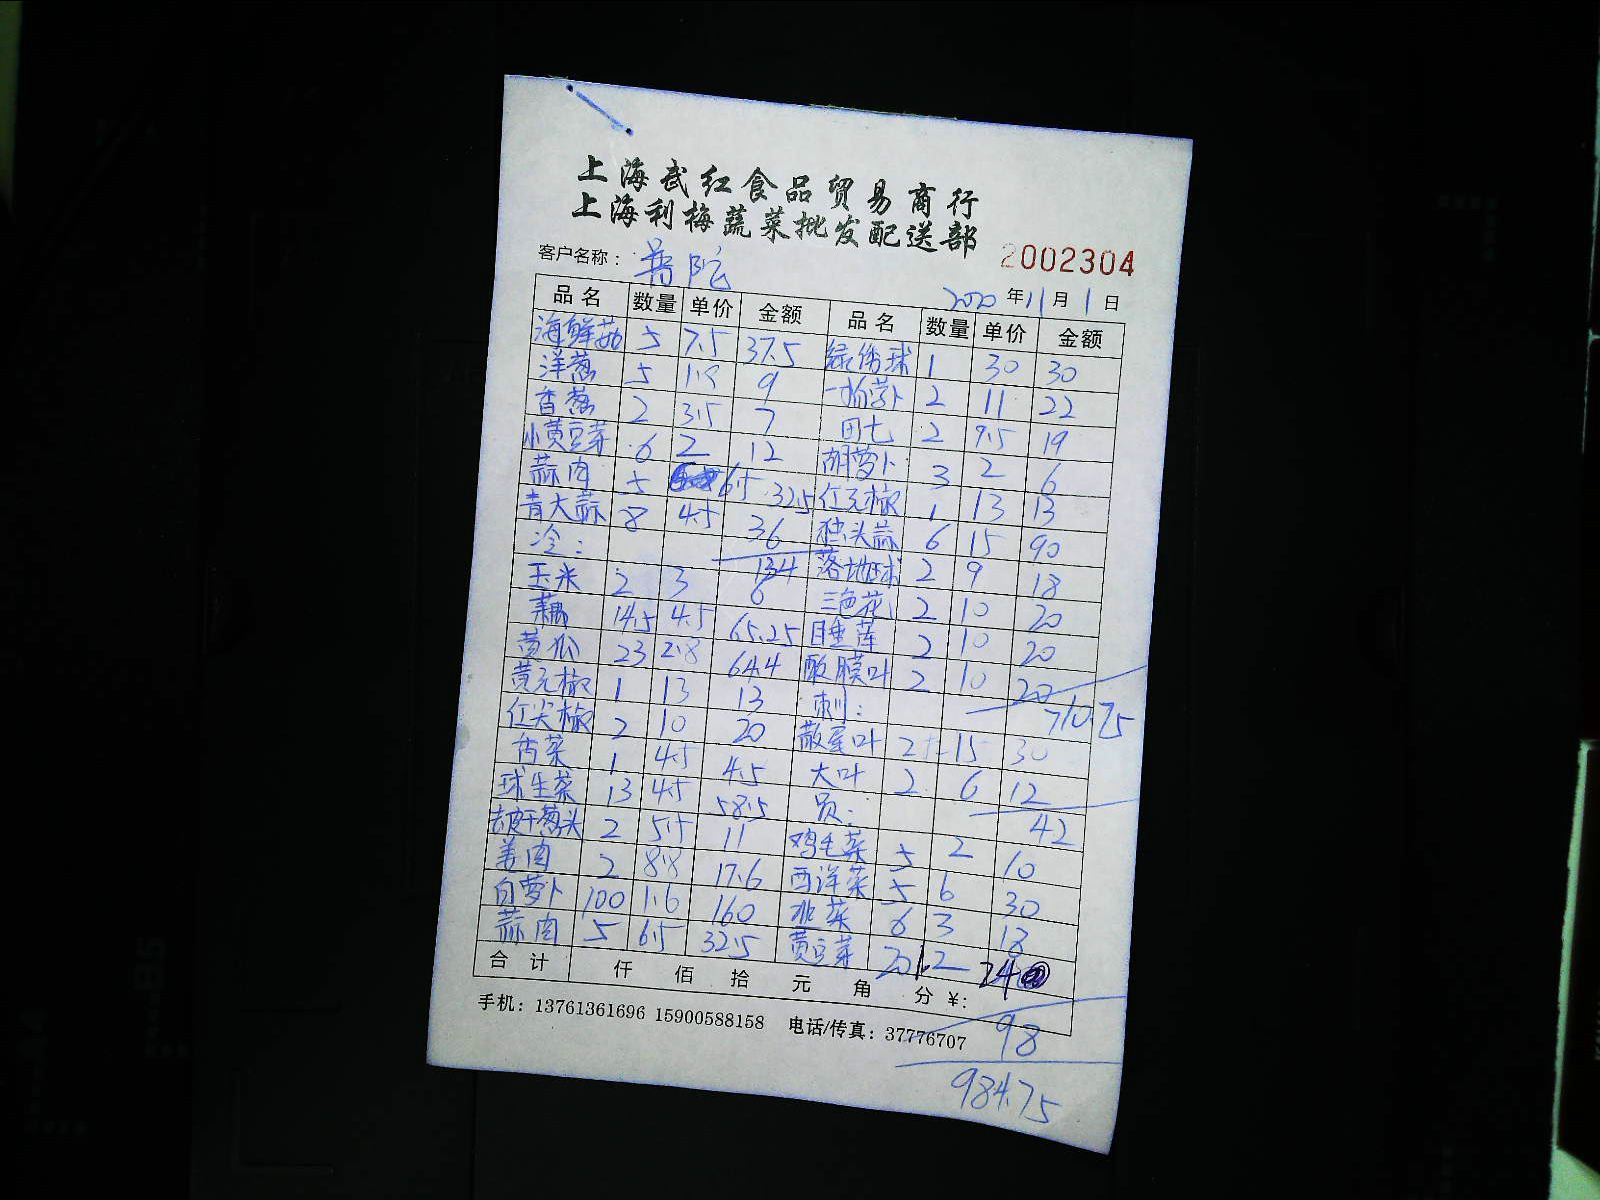 上海武红食品贸易商行
上海利梅蔬菜批发配送部
2002304
客户名称：普陀
2020年11月1日
品名 数量 单价 金额 品名 数量 单价 金额
海鲜菇 5 7.5 37.5 绿绣球 1 30 30
洋葱 5 1.8 9 2 11 22
香葱 2 3.5 7 田七 2 9.5 19
小黄豆芽 6 2 12 胡萝卜 3 2 6
蒜肉 5 6.5 32.5 红元椒 1 13 13
青大蒜 8 4.5 36 独头蒜 6 15 90
冷： 134 落地球 2 9 18
玉米 2 3 6 三色花 2 10 20
藕 14.5 4.5 65.25 睡莲 2 10 20
黄瓜 23 2.8 64.4 酸膜叶 2 10 20
黄元椒 1 13 13 刺： 710.75
红尖椒 2 10 20 散星叶 2 15 30
香菜 1 4.5 4.5 大叶 2 6 12
球生菜 13 4.5 58.5 员： 42
去皮干葱头 2 5.5 11 鸡毛菜 5 2 10
姜肉 2 8.8 17.6 西洋菜 5 6 30
白萝卜 100 1.6 160 韭菜 6 3 18
蒜肉 5 6.5 32.5 黄豆菜 20 1.2 24
合计 仟 佰 拾 元 角 分 ¥:
98
手机：13761361696 15900588158 电话/传真：37776707
984.75